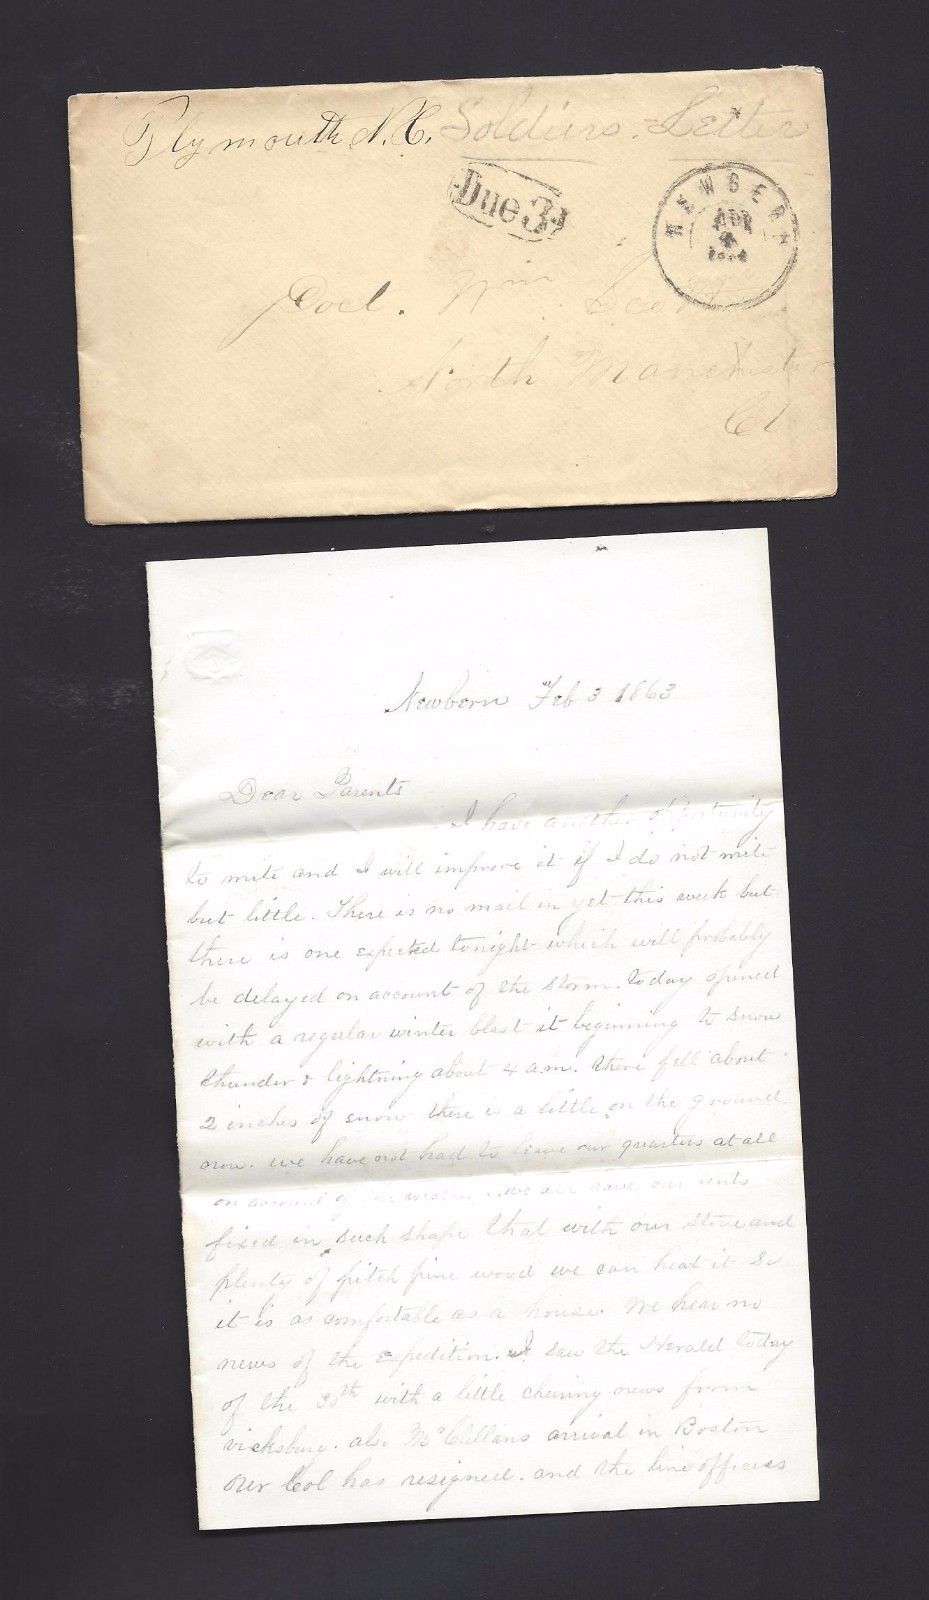 Plymouth N.C. Soldiers Letter
Due 3
NEWBERN
APR
Wm
North Manchester
Ct
Newbern Feb 3 1863
Dear Parents
I have another opportunity
to write and I will improve it if I do not write
but little. There is no mail in yet this week but
there is one expected tonight which will probably
be delayed on account of the storm. today opened
with a regular winter blast it beginning to snow
thunder & lightning about 4 a.m. there fell about
2 inches of snow there is a little on the ground
now. we have not had to leave our quarters at all
on account of we our tents
fixed in such shape that with our stove and
plenty of pitch pine wood we can heat it &
it is as comfortable as a house. We hear no
news of the expedition. I saw the Herald today
of the 30th with a little cheering news from
vicksburg. also McClellans arrival in Boston
our Col has resigned. and the line officers